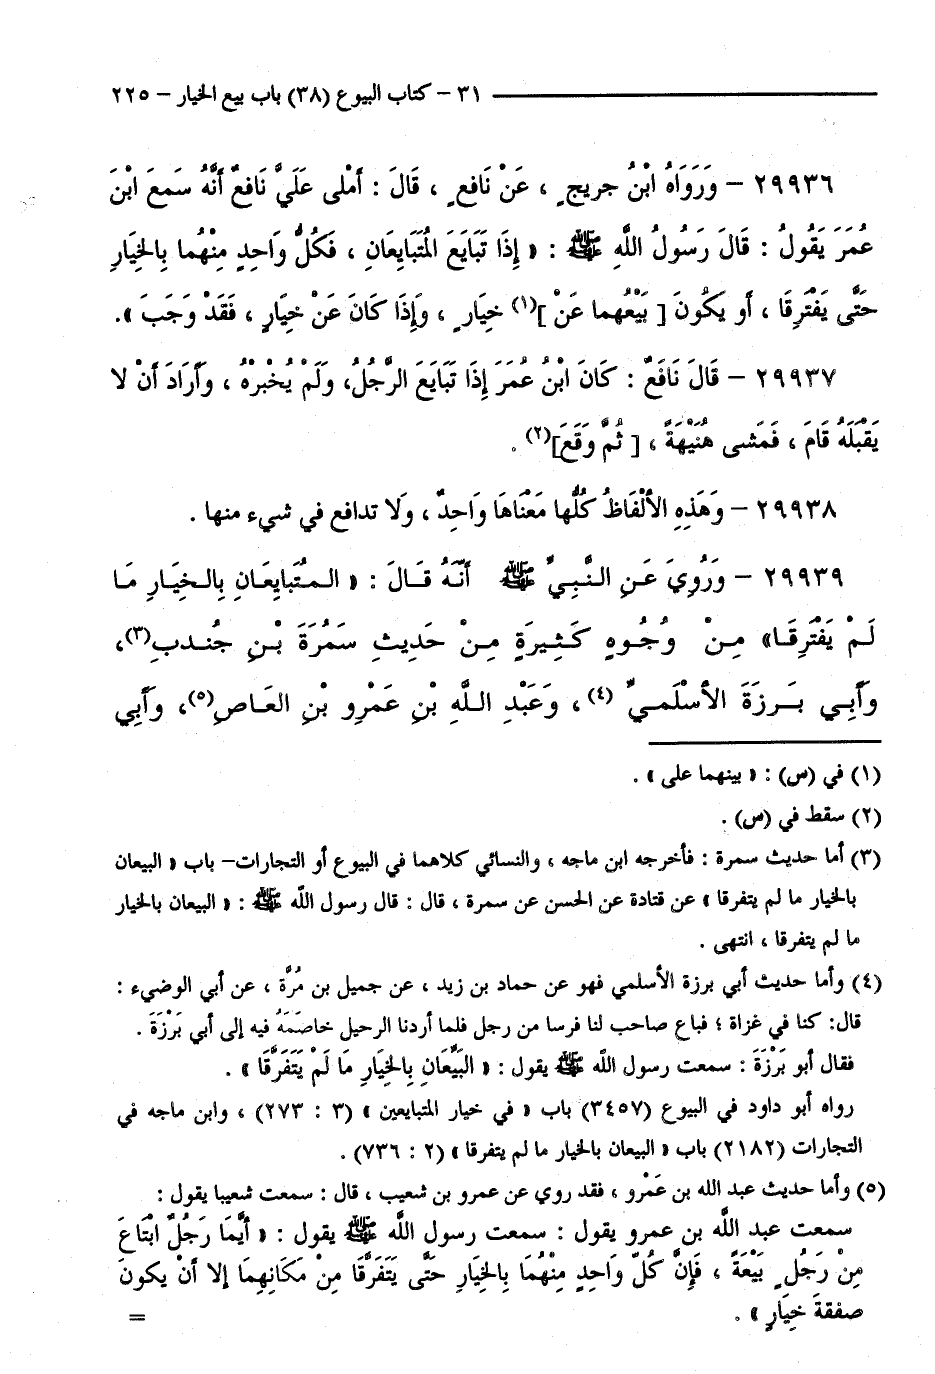 ٣١ - كتاب البيوع (٣٨) باب بيع الخيار - ٢٢٥
٢٩٩٣٦ - وَرَوَاهُ ابْنُ جريجٍ ، عَنْ نَافعٍ ، قَالَ : أَمْلى عَلَيَّ نَافعٌ أَنَّهُ سَمعَ ابْنَ
عُمَرَ يَقُولُ : قَالَ رَسُولُ اللَّهِ ﷺ : « إِذَا تَبَايَعَ الْمُتَبَايِعَانِ ، فَكُلُّ وَاحِدٍ مِنْهُما بِالخِيَارِ
حَتَّى يَفْتَرِقَا ، أَو يَكُونَ [ بَيْعُهما عَنْ ](١) خِيَارٍ ، وَإِذَا كَانَ عَنْ خِيَارٍ ، فَقَدْ وَجَبَ ».
٢٩٩٣٧ - قَالَ نَافَعٌ : كَانَ ابْنُ عُمَرَ إِذَا تَبَايَعَ الرَّجُلُ، وَلَمْ يُخْبِرْهُ ، وَأَرَادَ أَنْ لا
يَقْبَلَهُ قَامَ ، فَمَشى هُنَيْهَةً ، [ ثُمَّ وَقَعَ](٢) .
٢٩٩٣٨ - وَهَذِهِ الأَلْفَاظُ كُلُّها مَعْنَاهَا وَاحِدٌ ، وَلا تدافع في شيء منها .
٢٩٩٣٩ - وَرُوِيَ عَنِ النَّبِيِّ ﷺ أَنَّهُ قَالَ : « المُتَبَايِعَانِ بِالخِيَارِ مَا
لَمْ يَفْتَرِقَا» مِنْ وُجُوهٍ كَثِيرَةٍ مِنْ حَدِيثِ سَمُرَةَ بْنِ جُندبٍ(٣)،
وَأَبِي بَرزَةَ الأَسْلَميِّ (٤) ، وَعَبْدِ اللَّهِ بْنِ عَمْرِو بْنِ العَاصِ(٥)، وَأَبِي
(١) في (س) : « بينهما على » .
(٢) سقط في (س) .
(٣) أما حديث سمرة : فأخرجه ابن ماجه ، والنسائي كلاهما في البيوع أو التجارات- باب « البيعان
بالخيار ما لم يتفرقا » عن قتادة عن الحسن عن سمرة ، قال : قال رسول اللَّه ﷺ : « البيعان بالخيار
ما لم يتفرقا ، انتهى .
(٤) وأما حديث أبي برزة الأسلمي فهو عن حماد بن زيد ، عن جميل بن مُرَّة ، عن أبي الوضيء :
قال: كنا في غزاة ؛ فباع صاحب لنا فرسا من رجل فلما أردنا الرحيل خاصَمَهُ فيه إلى أبي بَرْزَةَ .
فقال أبو بَرْزَةَ : سمعت رسول اللَّه ﷺ يقول : « البَيِّعَانِ بِالخِيَارِ مَا لَمْ يَتَفَرَّقَا » .
رواه أبو داود في البيوع (٣٤٥٧) باب « في خيار المتبايعين » (٣ : ٢٧٣) ، وابن ماجه في
التجارات (٢١٨٢) باب « البيعان بالخيار ما لم يتفرقا » (٢ : ٧٣٦) .
(٥) وأما حديث عبد الله بن عَمْرو ، فقد روي عن عمرو بن شعيب ، قال : سمعت شعيبا يقول :
سمعت عبد اللَّه بن عمرو يقول : سمعت رسول اللَّه ﷺ يقول : « أَيُّمَا رَجُلٌ ابْتَاعَ
مِنْ رَجُلٍ بَيْعَةً ، فَإِنَّ كُلَّ وَاحِدٍ مِنْهُمَا بِالخِيَارِ حَتَّى يَتَفَرَّقَا مِنْ مَكَانِهِمَا إلا أَنْ يكونَ
صفقةَ خِيَارٍ » .
=